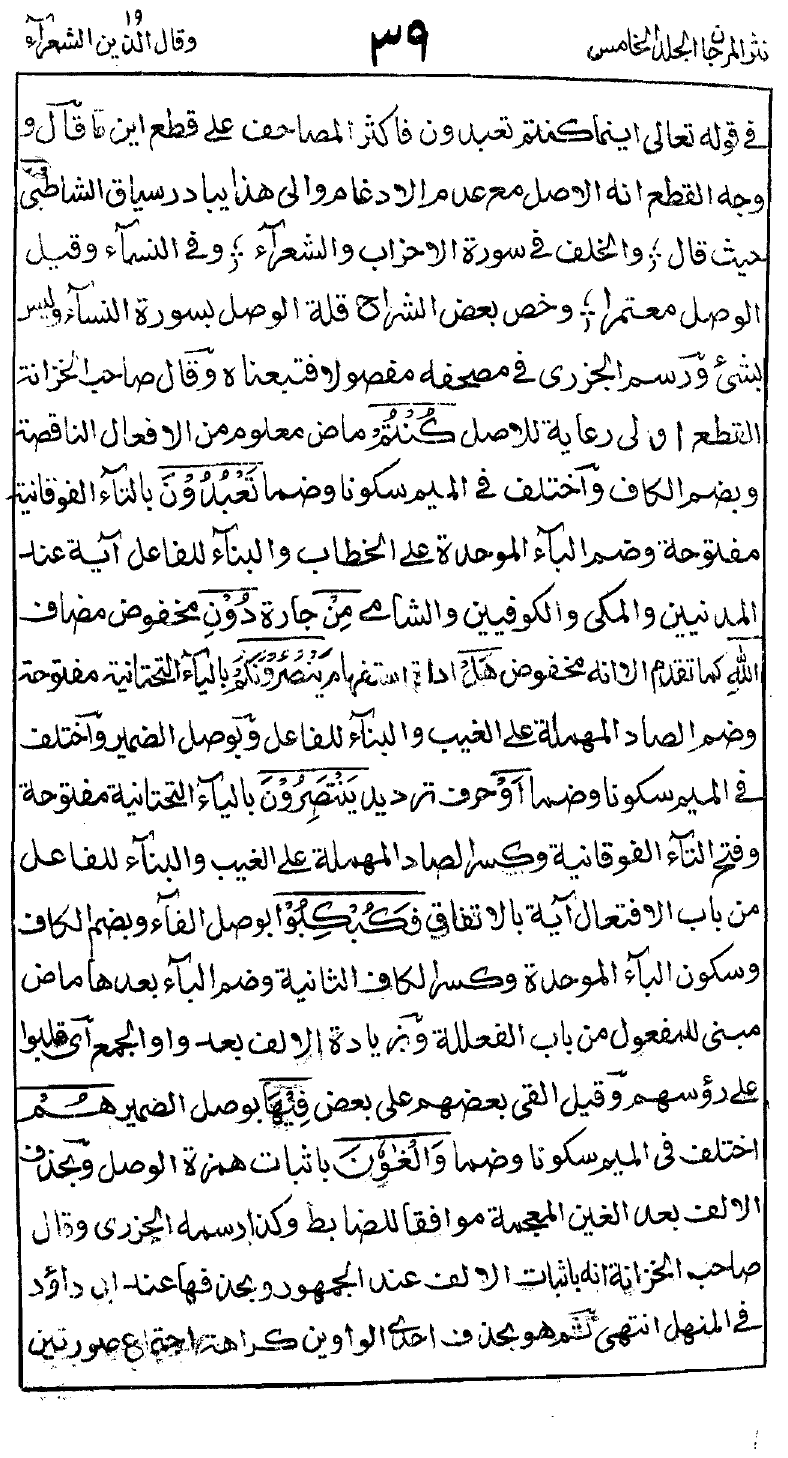 نثر المرجان الجلد الخامس ٣٩ وقال الذين ١٩ الشعرآء
في قوله تعالى اينما كنتم تعبدون فاكثر المصاحف على قطع اين ما قال و
وجه القطع انه الاصل مع عدم الادغام والى هذا يبادر سياق الشاطبيّ
حيث قال ؛ والخلف في سورة الاحزاب والشعرآء ؛ وفي النسآء وقيل
الوصل معتمرا ؛ وخص بعض الشراح قلة الوصل بسورة النسآء وليس
بشئ ورسم الجزرى في مصحفه مفصولا فتبعناه وقال صاحب الخزانة
القطع اولى رعاية للاصل كُنْتُمْ ماض معلوم من الافعال الناقصة
وبضم الكاف واختلف في الميم سكونا وضما تَعْبُدُوْنَ بالتآء الفوقانية
مفتوحة وضم البآء الموحدة على الخطاب والبنآء للفاعل آية عند
المدنيين والمكى والكوفيين والشامے مِنْ جارة دُوْنِ مخفوض مضاف
اللهِ كما تقدم الا انه مخفوض هَلْ اداة استفهام يَنْصُرُوْنَكُمْ باليآء التحتانية مفتوحة
وضم الصاد المهملة على الغيب والبنآء للفاعل وبوصل الضمير واختلف
في الميم سكونا وضما اَوْ حرف ترديد يَنْتَصِرُوْنَ باليآء التحتانية مفتوحة
وفتح التآء الفوقانية وكسر الصاد المهملة على الغيب والبنآء للفاعل
من باب الافتعال آية بالاتفاق فَكُبْكِبُوْا بوصل الفآء وبضم الكاف
وسكون البآء الموحدة وكسر الكاف الثانية وضم البآء بعدها ماض
مبنى للمفعول من باب الفعللة وبزيادة الالف بعد واو الجمع اى قلبوا
على رؤسهم وقيل القى بعضهم على بعض فِيْهَا بوصل الضمير هُمْ
اختلف في الميم سكونا وضما وَالْغٰوٗنَ باثبات همزة الوصل وبحذف
الالف بعد الغين المعجمة موافقا للضابط وكذا رسمه الجزرى وقال
صاحب الخزانة انه باثبات الالف عند الجمهور وبحذفها عند ابى داؤد
في المنهل انتهى ثم هو بحذف احدى الواوين كراهة اجتماع صورتين